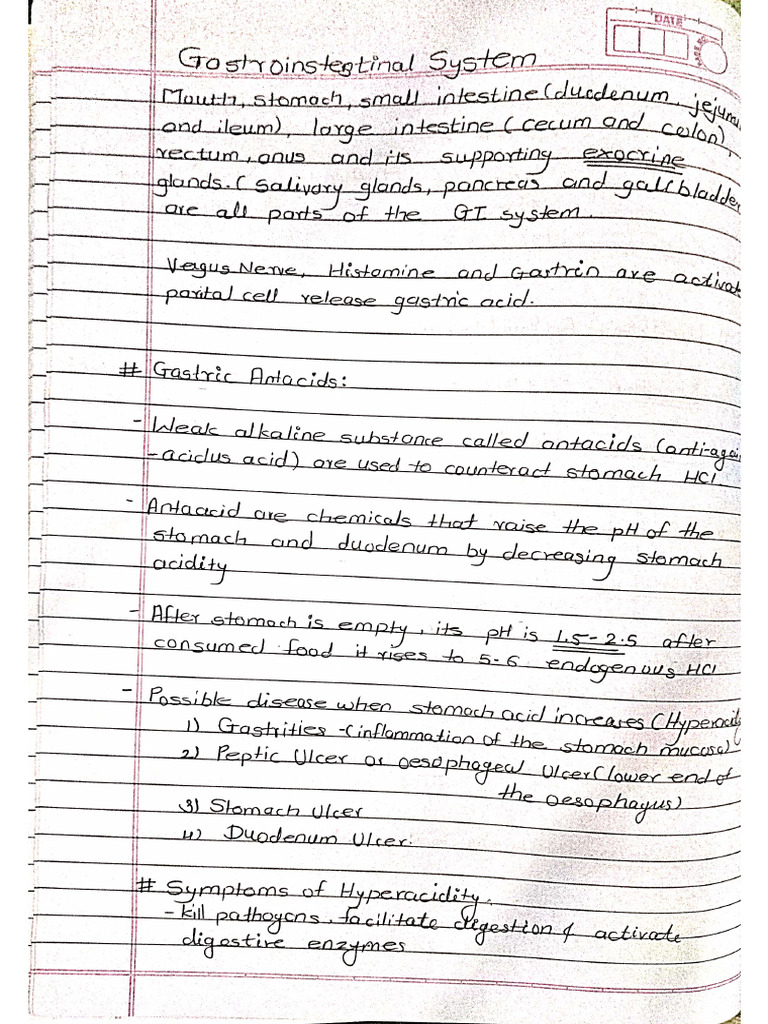 DATE
Gastroinstestinal System
Mouth, stomach, small intestine (duodenum, jejunu
and ileum), large intestine (cecum and colon),
rectum, anus and its supporting exocrine
glands. (Salivary glands, pancreas and gallbladder
are all parts of the GI system.
Vagus Nerve, Histamine and Gastrin are activat
parital cell release gastric acid.
# Gastric Antacids:
- Weak alkaline substance called antacids (anti-again
-acidus acid) are used to counteract stomach HCl.
- Antaacid are chemicals that raise the pH of the
stomach and duodenum by decreasing stomach
acidity
- After stomach is empty, its pH is 1.5-2.5 after
consumed food it rises to 5-6 endogenous HCl
- Possible disease when stomach acid increases (Hyperacidity
1) Gastrities - (inflammation of the stomach mucosa)
2) Peptic Ulcer or oesophageal Ulcer (lower end of
the oesophagus)
3) Stomach Ulcer
4) Duodenum Ulcer.
# Symptoms of Hyperacidity.
- kill pathogens, facilitate digestion & activate
digestive enzymes